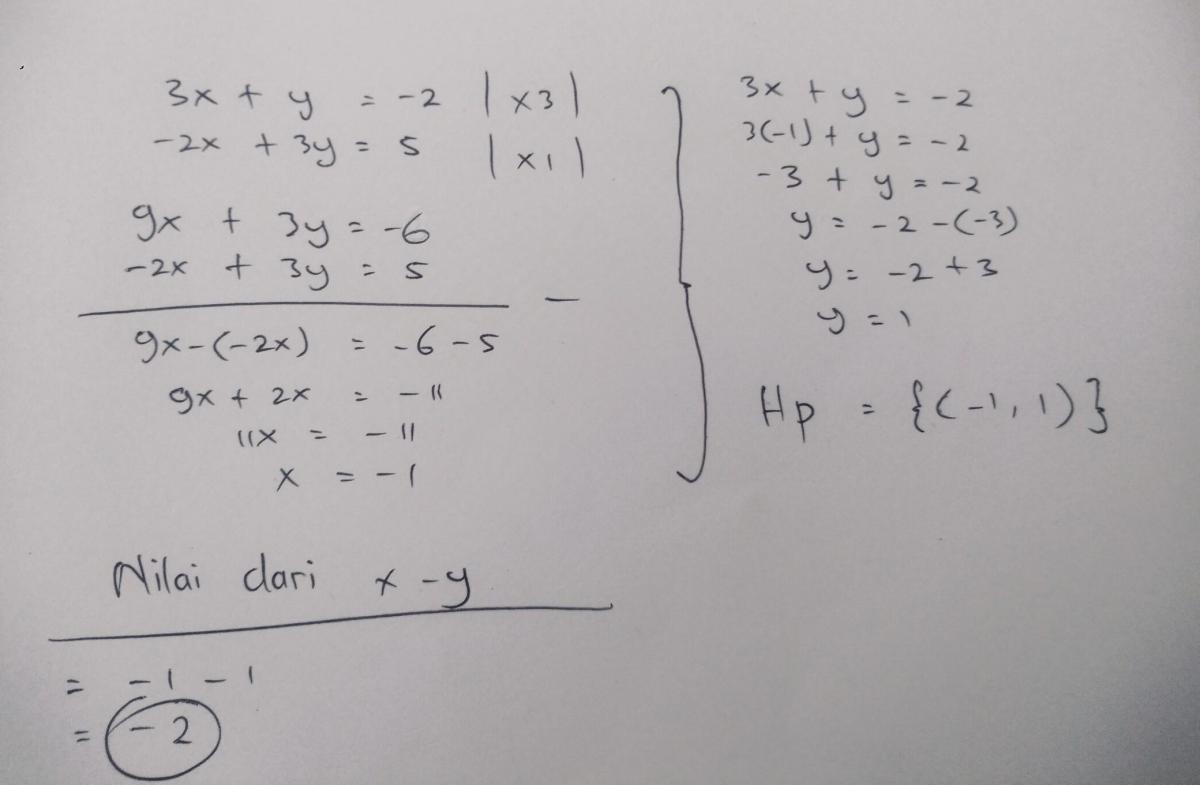 3x + y = -2 | x3 |
-2x + 3y = 5 | x1 |
9x + 3y = -6
-2x + 3y = 5
—
9x-(-2x) = -6-5
9x + 2x = -11
11x = -11
x = -1
3x + y = -2
3(-1) + y = -2
-3 + y = -2
y = -2-(-3)
y = -2+3
y = 1
Hp = {(-1, 1)}
Nilai dari x-y
= -1-1
= -2